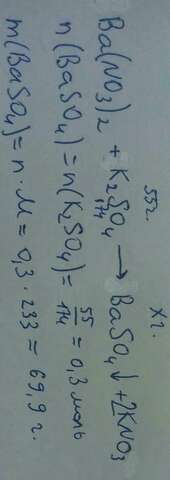 55г. Xг.
Ba(NO3)2 + K2SO4 → BaSO4↓ + 2KNO3
174
n(BaSO4) = n(K2SO4) = 55/174 = 0,3 моль
m(BaSO4) = n · M = 0,3 · 233 = 69,9 г.